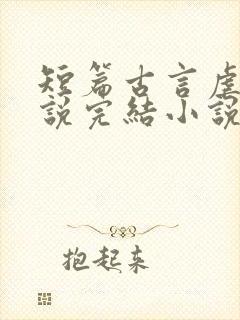 短篇古言虐
說完結小說
抱起来